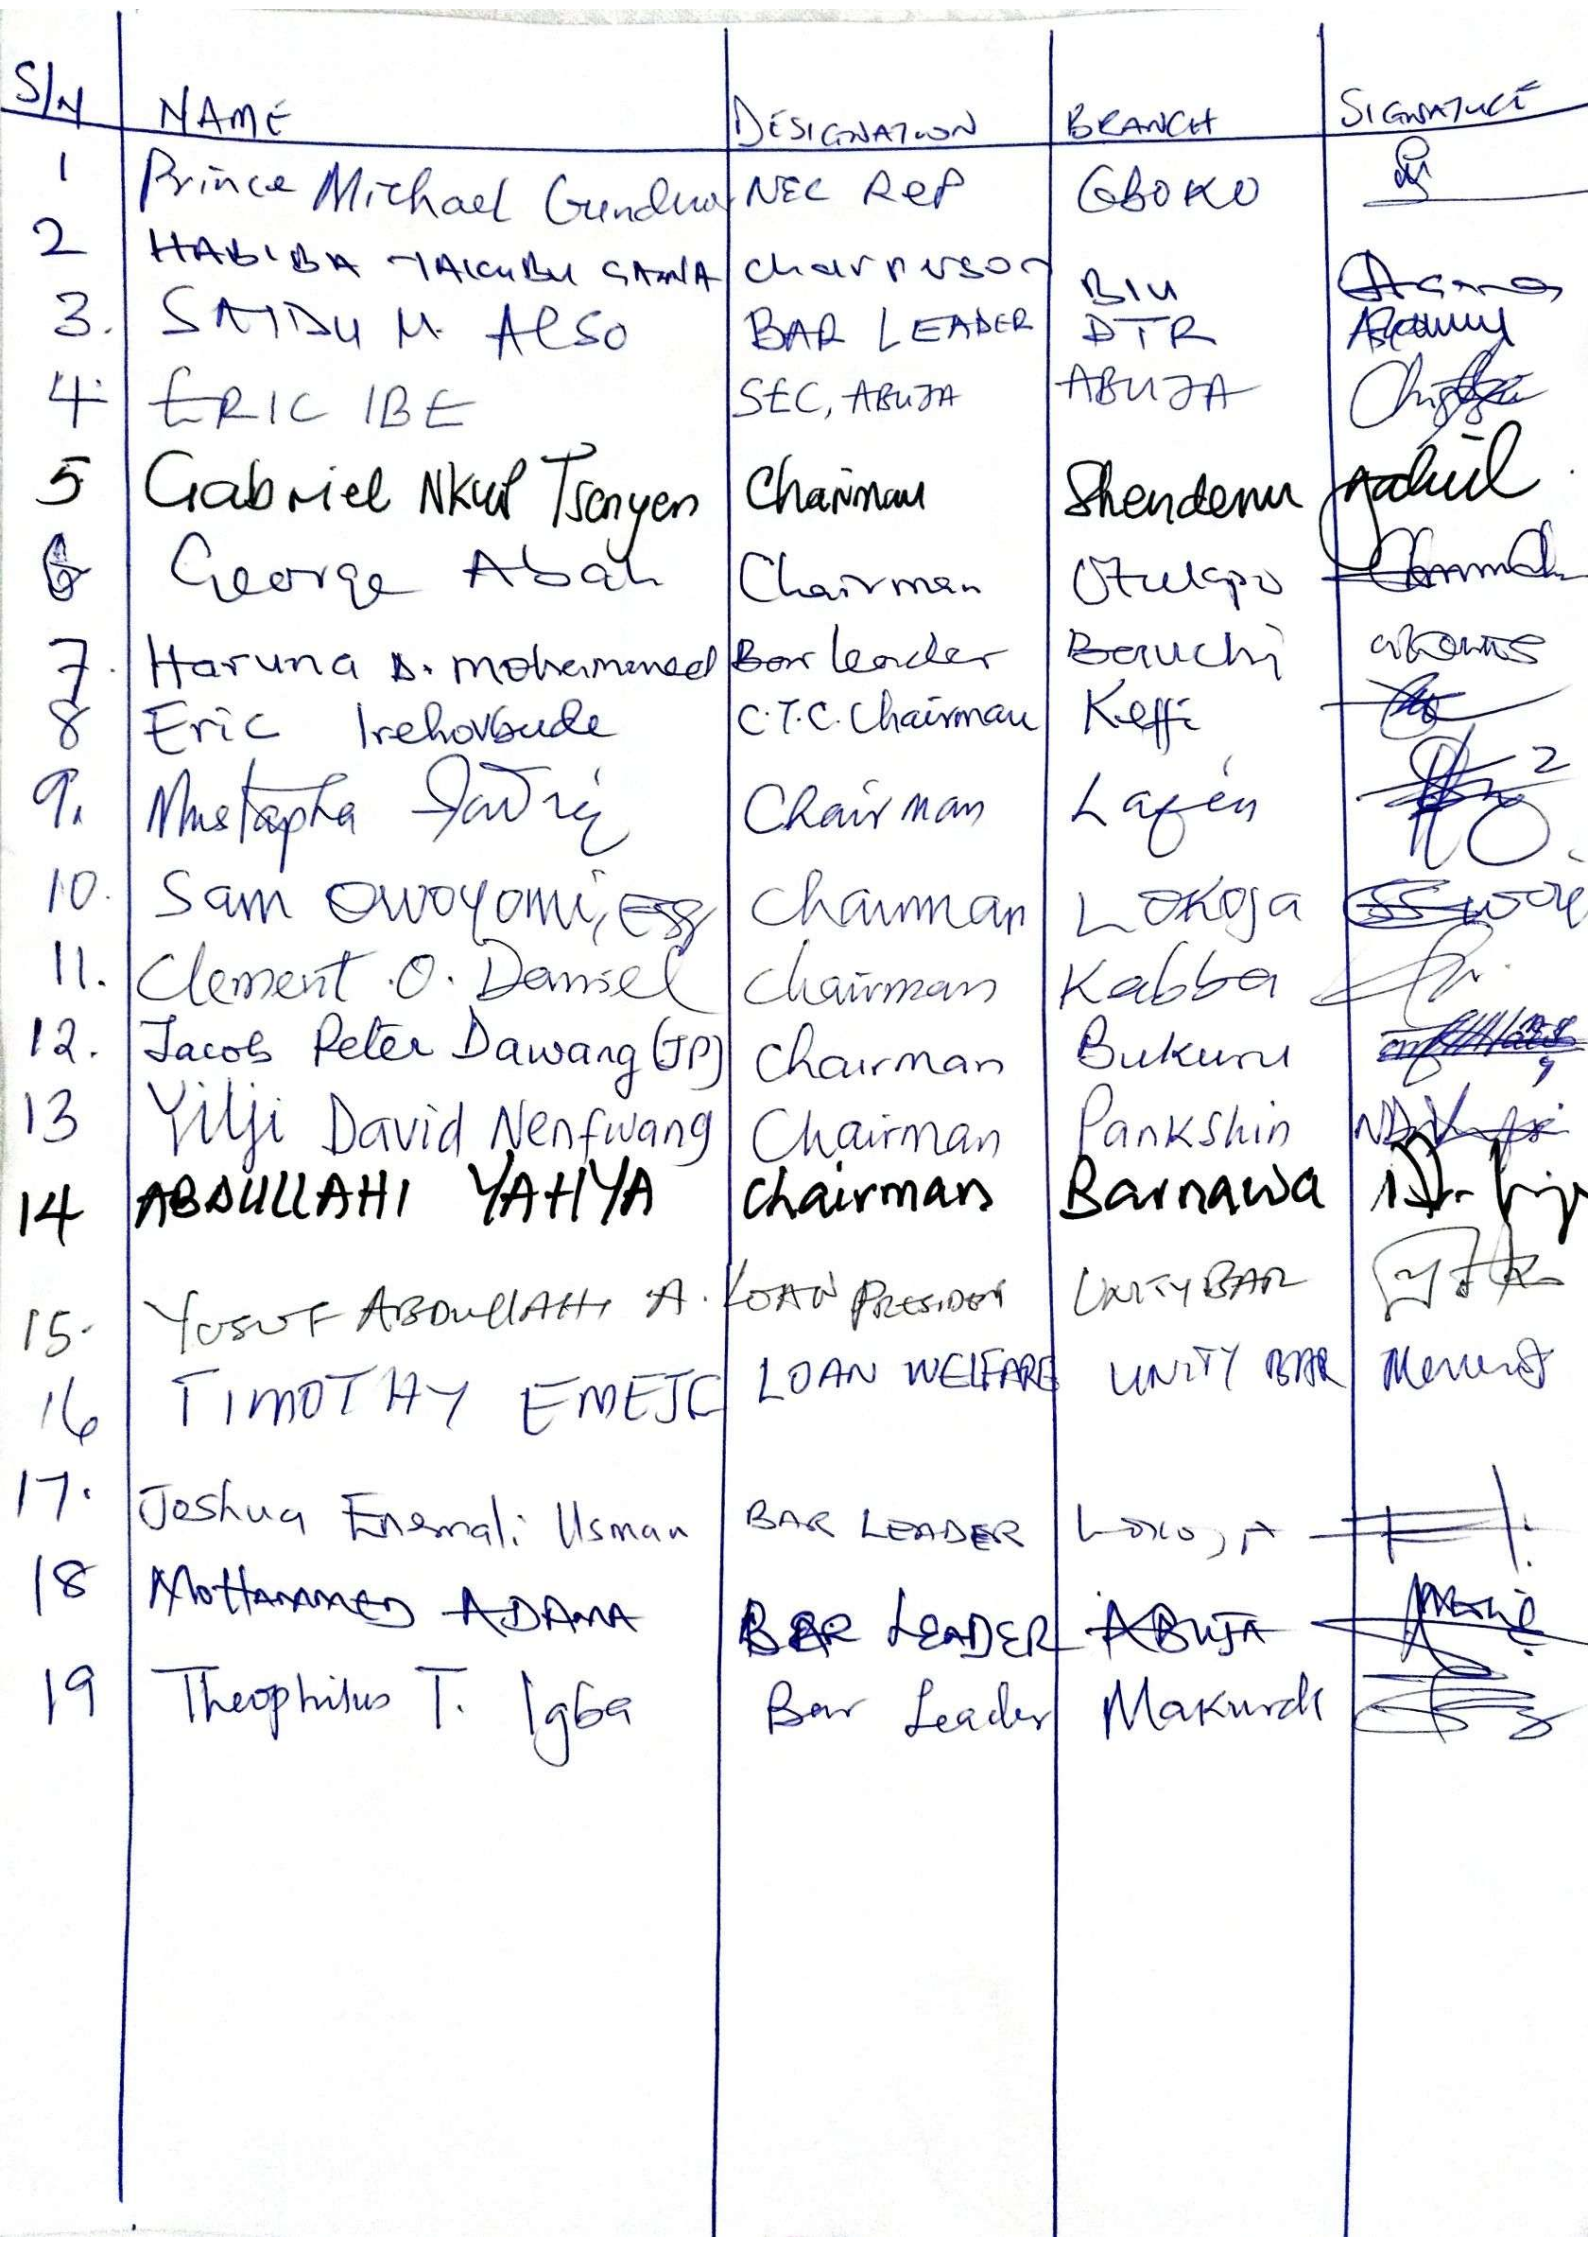 S/N NAME DESIGNATION BRANCH SIGNATURE
1 Prince Michael NEC REP GBOKO
2 HABIBA YAKUBU GAMA chairperson BIU
3. SAIDU M. Also BAR LEADER DTR
4. ERIC IBE SEC, ABUJA ABUJA
5 Gabriel Tsenyen Chairman Shendam
6 George Abah Chairman Otukpo
7. Haruna D. mohammed Bar leader Bauchi
8 Eric Irehovbude C.T.C. Chairman Keffi
9. Mustapha Chairman Lafia
10. Sam Owoyomi, Esq Chairman LOKOJA
11. Clement .O. Daniel Chairman Kabba
12. Jacob Peter Dawang (JP) Chairman Bukuru
13 Yilji David Nenfwang Chairman Pankshin
14 ABDULLAHI YAHYA Chairman Barnawa
15. YUSUF ABDULLAHI A. LOAN PRESIDENT UNITY BAR
16 TIMOTHY EMEJE LOAN WELFARE UNITY BAR
17. Joshua Enemali Usman BAR LEADER LOKOJA
18 MOHAMMED ADAMA BAR LEADER ABUJA
19 Theophilus T. Igba Bar Leader Makurdi